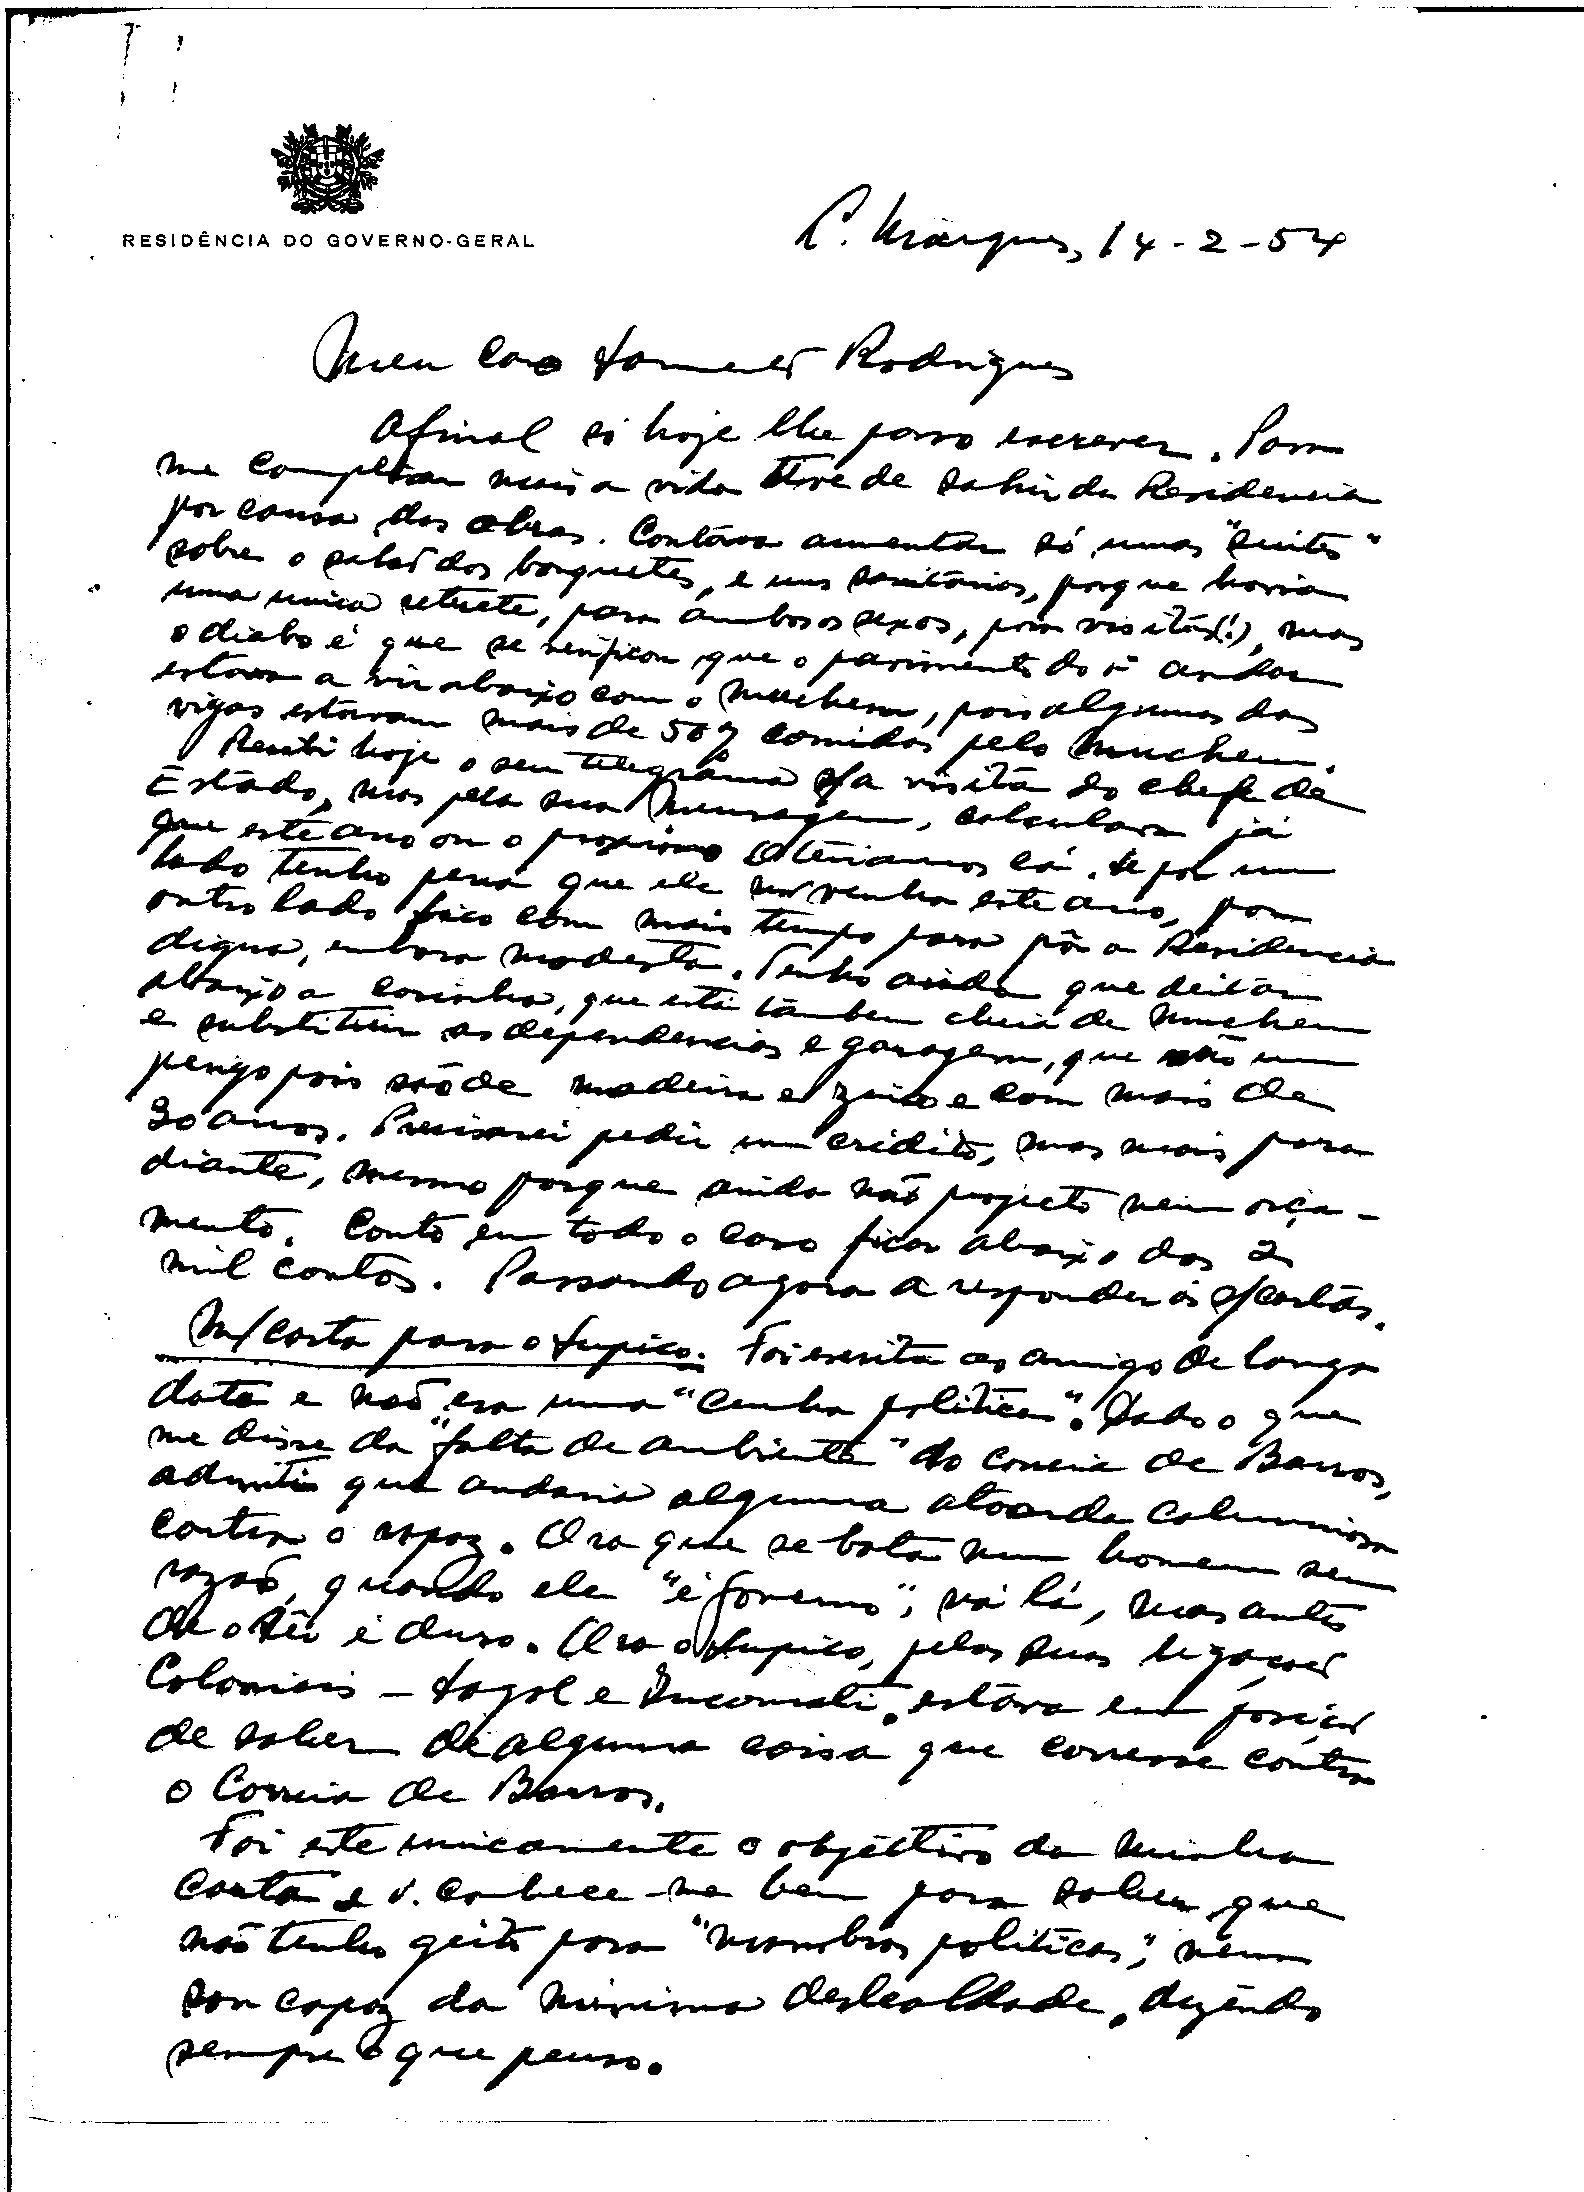 RESIDÊNCIA DO GOVERNO-GERAL
L. Marques, 14-2-54
Meu Caro Sarmento Rodrigues
Afinal só hoje lhe posso escrever. Para
me complicar mais a vida tive de sahir da Residencia
por causa das obras. Contava aumentar só umas "suites"
sobre o salão dos banquetes, e uns sanitários, porque havia
uma unica retrete, para ambos os sexos, para visitas(!), mas
o diabo é que se verificou que o pavimento do 1º andar
estava a vir abaixo com o muchem, pois algumas das
vigas estavam mais de 50% comidas pelo muchem.
Recebi hoje o seu telegrama s/a visita do chefe de
Estado, mas pela sua mensagem, calculava já
que este ano ou o proximo o teriamos cá. Se por um
lado tenho pena que ele não venha este ano, por
outro lado fico com mais tempo para pôr a Residencia
digna, embora modesta. Tenho ainda que deitar
abaixo a cosinha, que está tambem cheia de muchem
e substituir as dependencias e garagem, que são um
perigo pois são de madeira e zinco e com mais de
30 anos. Precisarei pedir um crédito, mas mais para
diante, mesmo porque ainda não projecto nem orça-
mento. Conto em todo o caso ficar abaixo dos 2
mil contos. Passando agora a responder ás s/cartas.
M/carta para o Supico. Foi escrita ao amigo de longa
data e não era uma "cunha politica". Dado o que
me disse da "falta de ambiente" do Correia de Barros,
admiti que andaria alguma atoarda caluniosa
contra o rapaz. Ora que se bata num homem sem
razão, quando ele "é governo", vá lá, mas antes
de o ser é duro. Ora o Supico, pelas suas ligações
Coloniais – Sagal e Incomati, estava em posição
de saber de alguma coisa que corresse contra
o Correia de Barros.
Foi este unicamente o objectivo da minha
carta e V. conhece-me bem para saber que
não tenho geito para "manobras politicas", nem
sou capaz da minima deslealdade, dizendo
sempre o que penso.